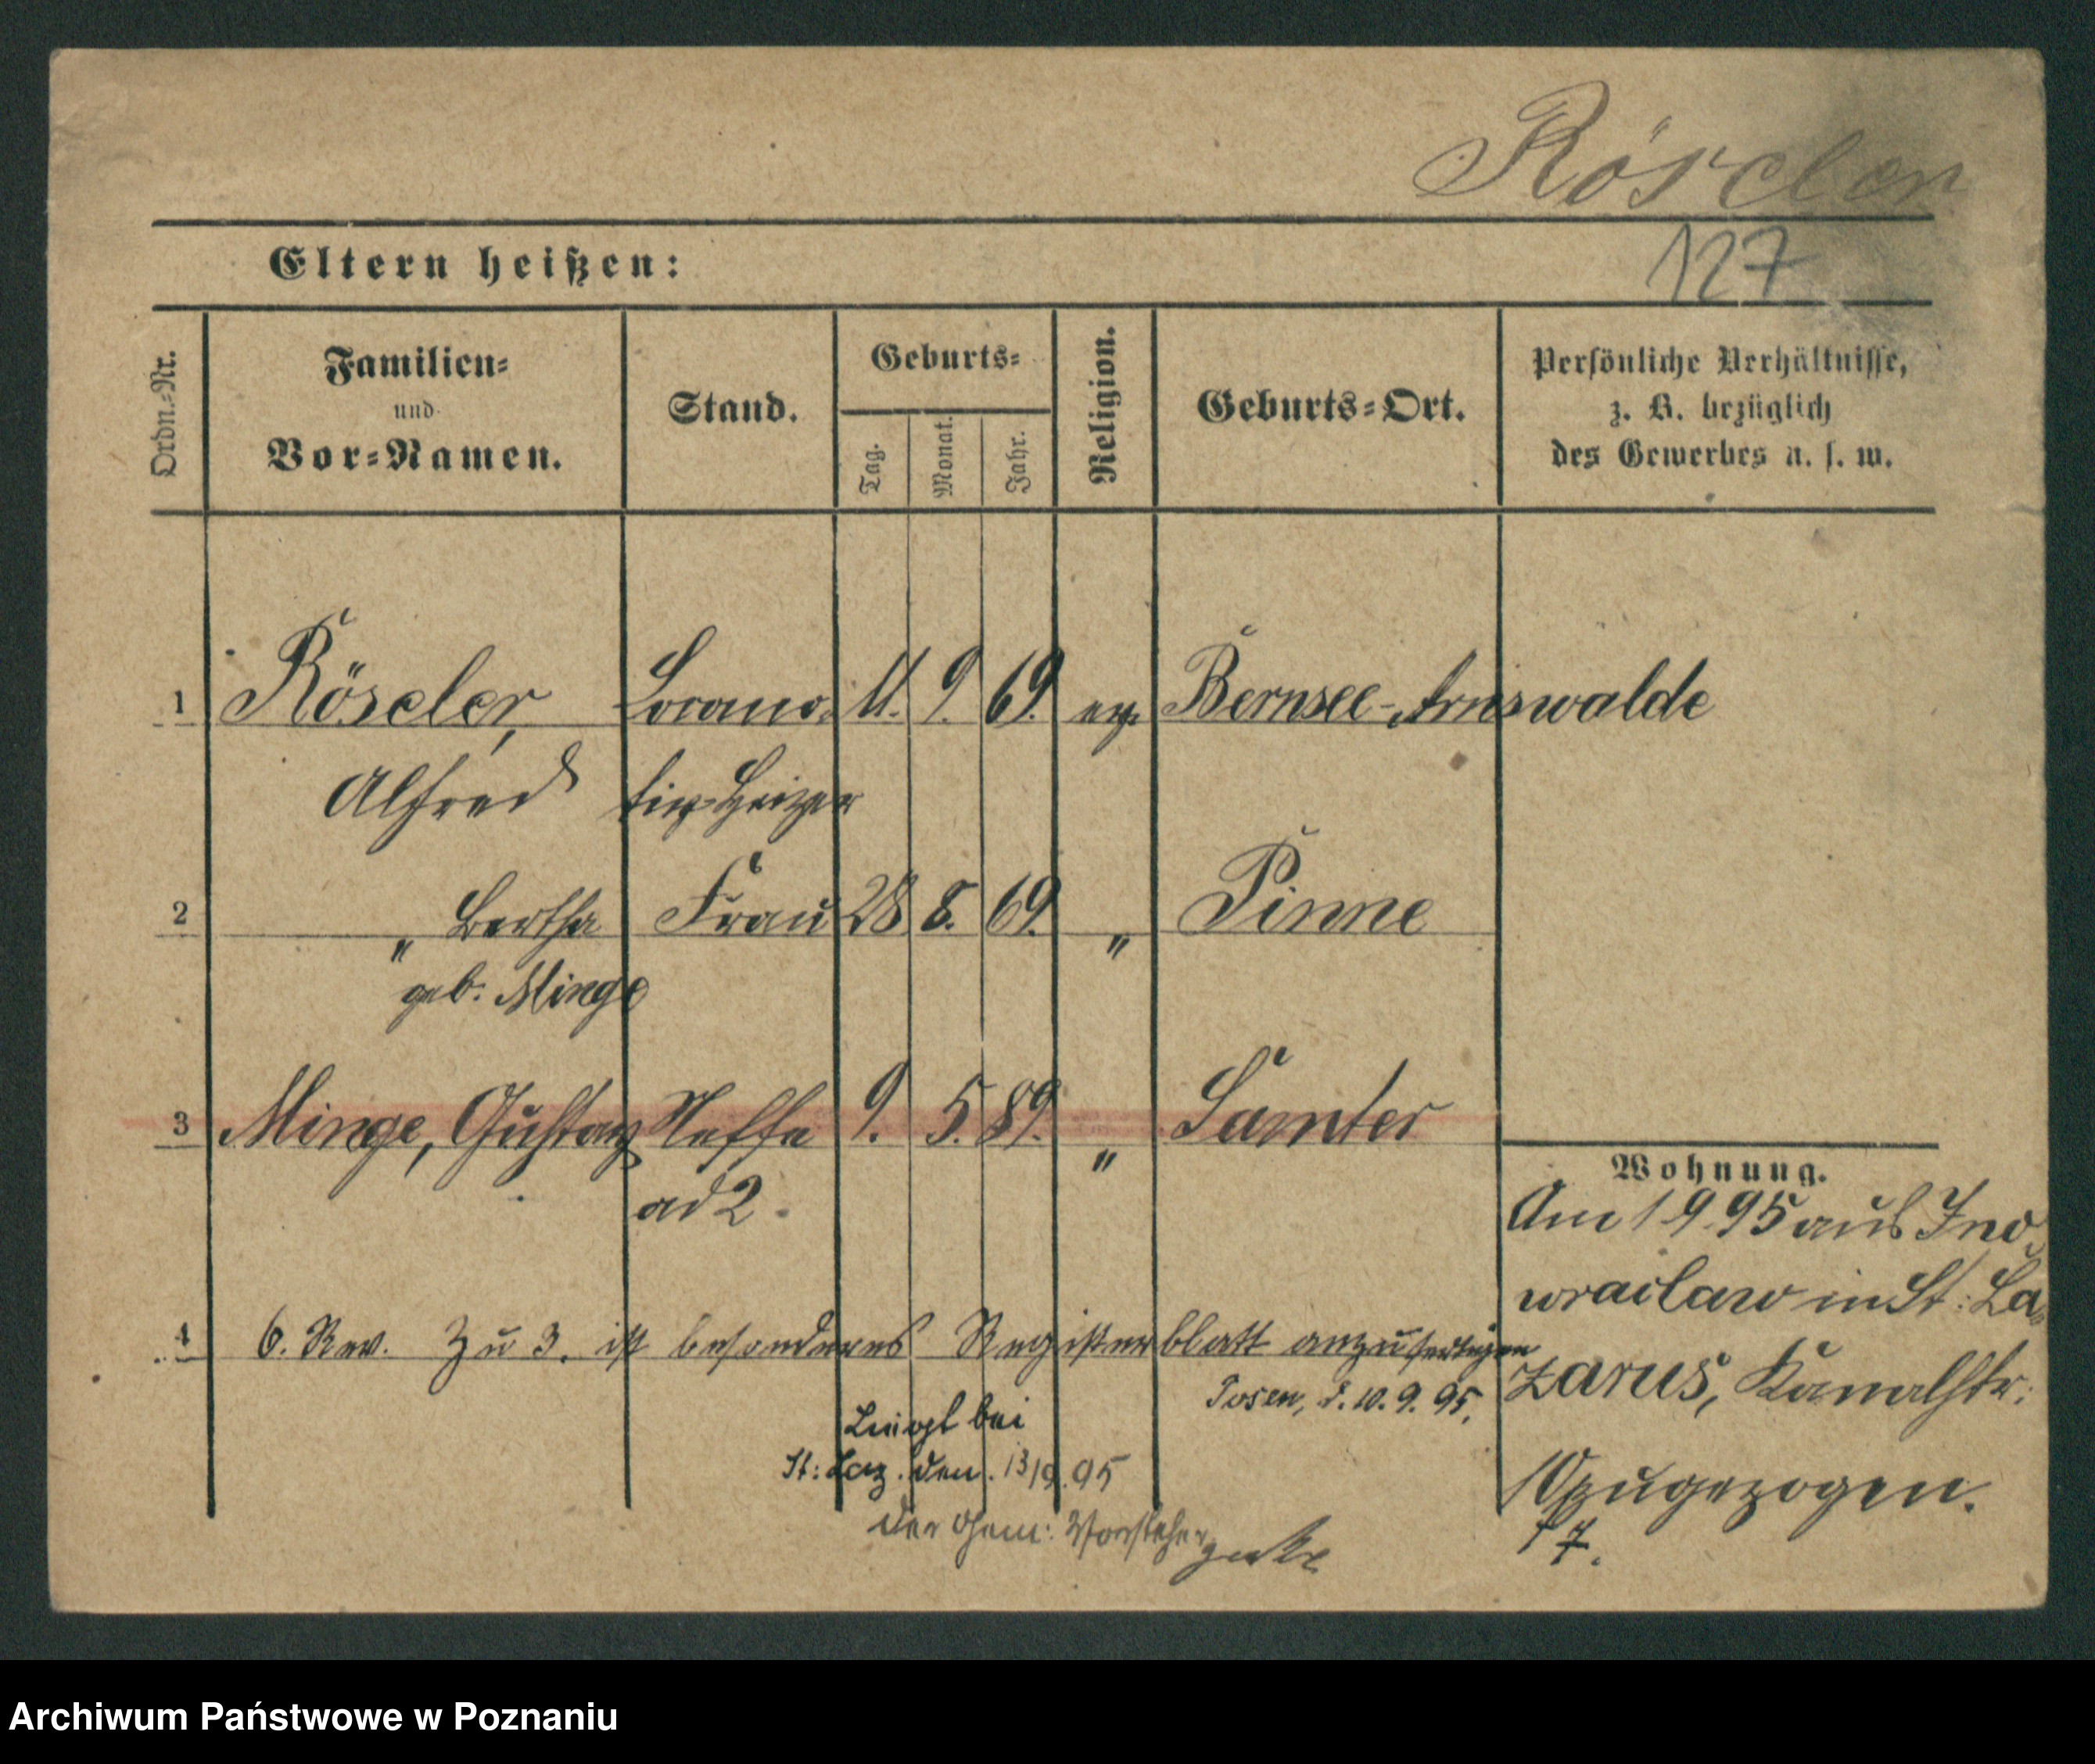 Röseler
127
Eltern heißen:
Ordn.-Nr.
Familien-
und
Vor-Namen.
Stand.
Geburts-
Tag.
Monat.
Jahr.
Religion.
Geburts-Ort.
Persönliche Verhältnisse,
z. B. bezüglich
des Gewerbes u. s. w.
1 Röseler, Locomo- 11. 9. 69. ev. Bernsee-Arnswalde
Alfred tiv-Heizer
2 " Bertha Frau 28 8. 69. " Pinne
geb. Minge
3 Minge, Gustav Neffe 9. 5. 89. " Samter
ad 2.
Wohnung.
Am 1 9. 95 aus Ino
wrazlaw in St: La-
zarus, Kanalstr:
zugezogen.
4 6. Rev. Zu 3. ist besonderes Registerblatt anzufertigen
Posen, d. 10. 9. 95.
bei
St: Laz. den. 13/9. 95
Der Gem: Vorsteher